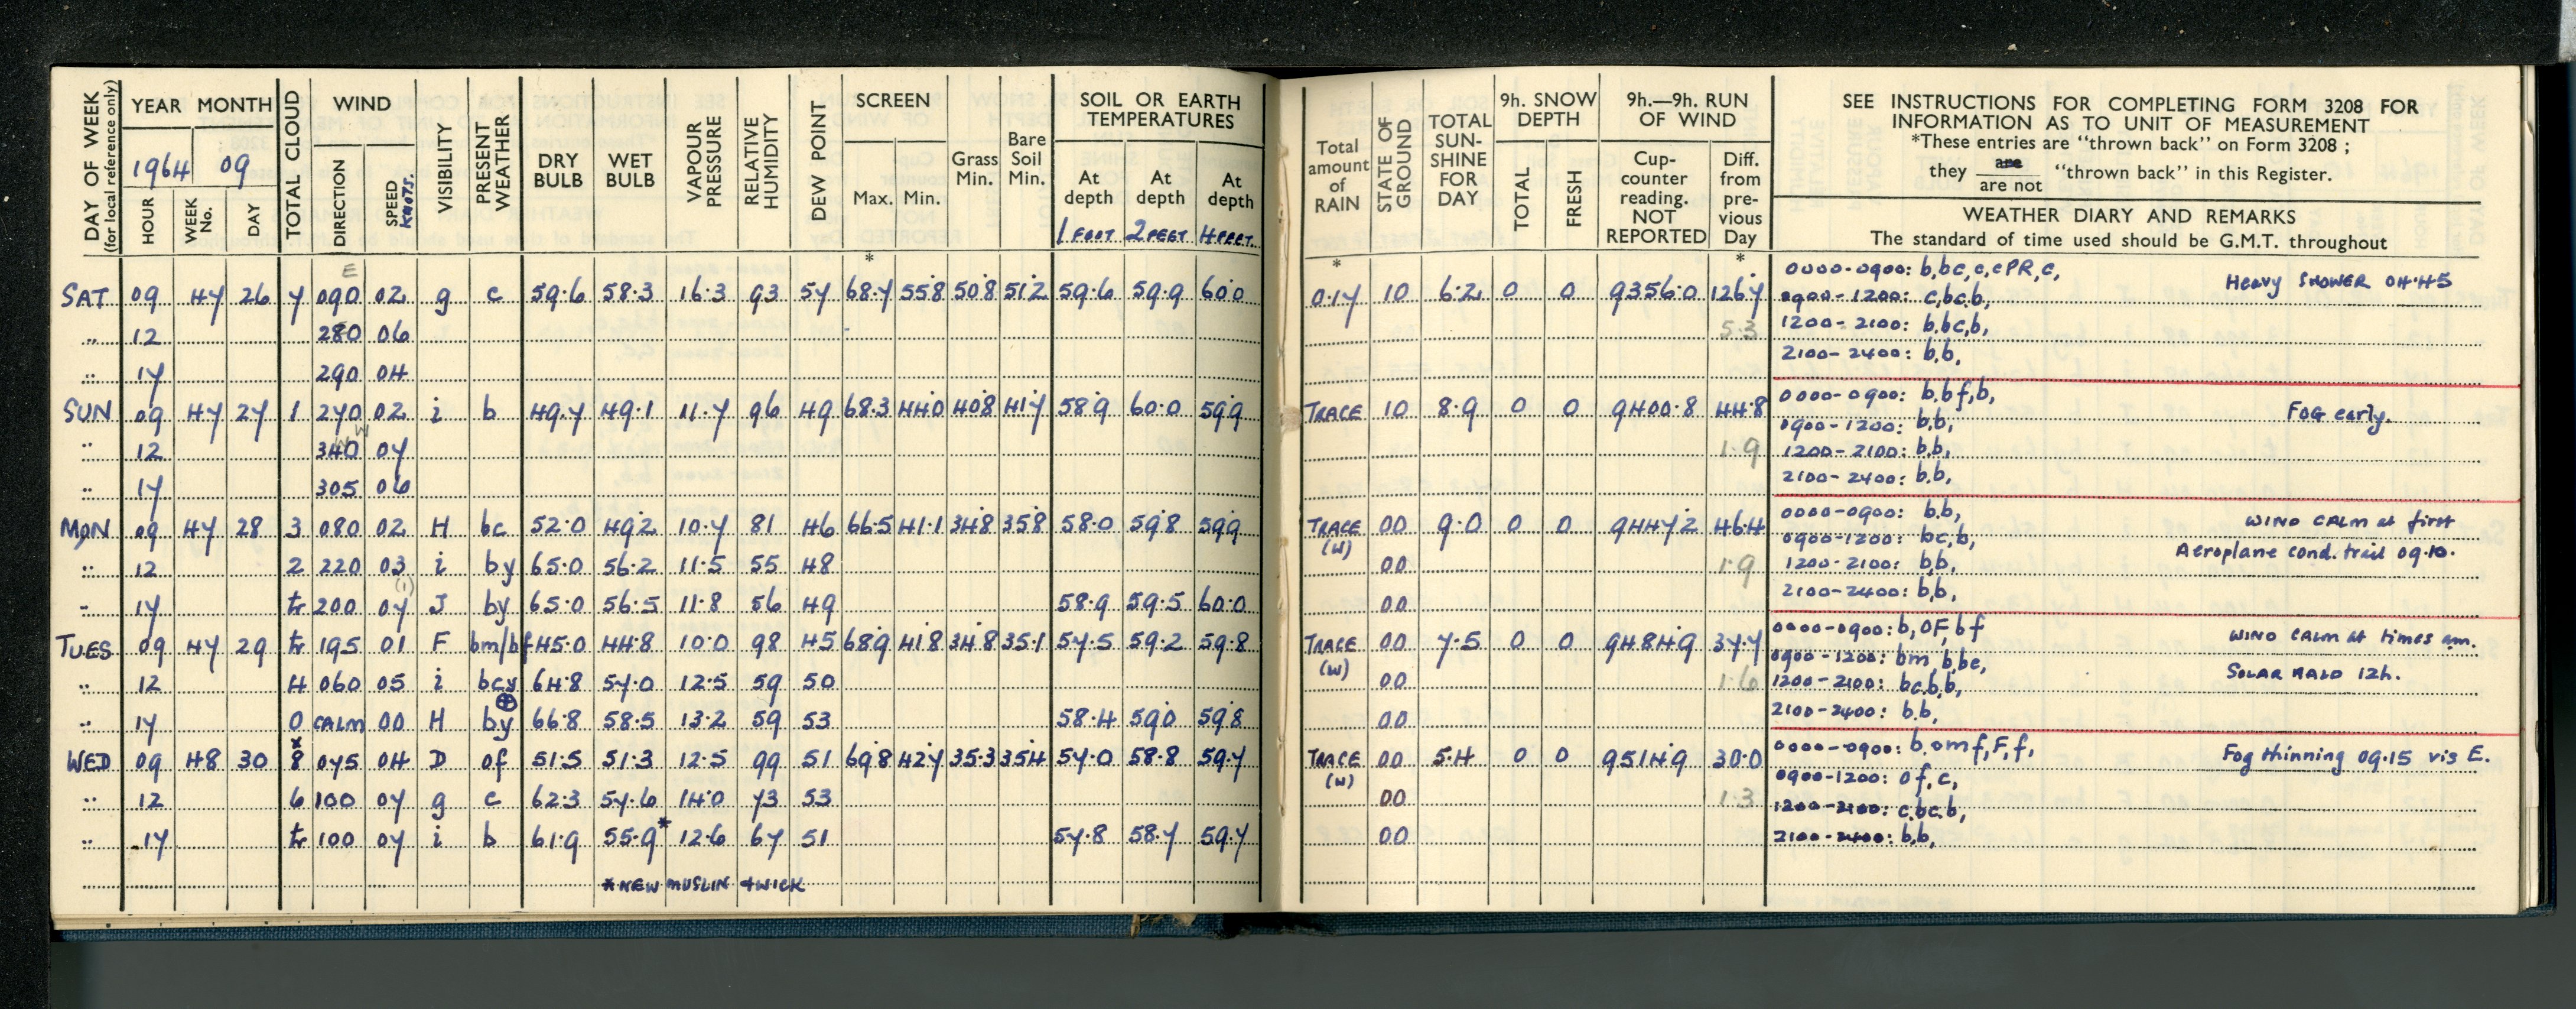 DAY OF WEEK (for local reference only)
YEAR MONTH
1964 09
HOUR WEEK No. DAY
TOTAL CLOUD
WIND
DIRECTION SPEED KNOTS.
VISIBILITY
PRESENT WEATHER
DRY BULB
WET BULB
VAPOUR PRESSURE
RELATIVE HUMIDITY
DEW POINT
SCREEN
Max. Min.
Grass Min.
Bare Soil Min.
SOIL OR EARTH TEMPERATURES
At depth At depth At depth
1 FOOT 2 FEET 4 FEET
Total amount of RAIN
STATE OF GROUND
TOTAL SUN-SHINE FOR DAY
9h. SNOW DEPTH
TOTAL FRESH
9h.—9h. RUN OF WIND
Cup-counter reading. NOT REPORTED
Diff. from pre-vious Day
SEE INSTRUCTIONS FOR COMPLETING FORM 3208 FOR
INFORMATION AS TO UNIT OF MEASUREMENT
*These entries are "thrown back" on Form 3208 ;
they are / are not "thrown back" in this Register.
WEATHER DIARY AND REMARKS
The standard of time used should be G.M.T. throughout
* * *
E
SAT 09 47 26 7 090 02 g c 59.6 58.3 16.3 93 57 68.7 55.8 50.8 51.2 59.6 59.9 60.0 0.17 10 6.2 0 0 9356.0 126.7
0000-0900: b,bc,c,cPR,c, Heavy SHOWER 04.45
0900-1200: c,bc,b,
" 12 280 06 5.3
1200-2100: b,bc,b,
2100-2400: b,b,
" 17 290 04
SUN 09 47 27 1 270 02 i b 49.7 49.1 11.7 96 49 68.3 44.0 40.8 41.7 58.9 60.0 59.9 TRACE 10 8.9 0 0 9400.8 44.8
0000-0900: b,bf,b, FOG early.
0900-1200: b,b,
" 12 340 07 1.9
1200-2100: b,b,
2100-2400: b,b,
" 17 305 06
MON 09 47 28 3 080 02 H bc 52.0 49.2 10.7 81 46 66.5 41.1 34.8 35.8 58.0 59.8 59.9 TRACE (W) 00 9.0 0 0 9447.2 46.4
0000-0900: b,b, WIND CALM at first
0900-1200: bc,b, Aeroplane cond. trail 09.10.
" 12 2 220 03 i by 65.0 56.2 11.5 55 48 00 1.9
1200-2100: b,b,
(1)
2100-2400: b,b,
" 17 tr 200 07 J by 65.0 56.5 11.8 56 49 58.9 59.5 60.0 00
TUES 09 47 29 tr 195 01 F bm/bf 45.0 44.8 10.0 98 45 68.9 41.8 34.8 35.1 57.5 59.2 59.8 TRACE (W) 00 7.5 0 0 9484.9 37.7
0000-0900: b,OF,bf WIND CALM at times am.
0900-1200: bm,b,bc, SOLAR HALO 12h.
" 12 4 060 05 i bcy 64.8 57.0 12.5 59 50 00 1.6
1200-2100: bc,b,b,
2100-2400: b,b,
" 17 0 CALM 00 H by 66.8 58.5 13.2 59 53 58.4 59.0 59.8 00
WED 09 48 30 8 075 04 D of 51.5 51.3 12.5 99 51 69.8 42.7 35.3 35.4 57.0 58.8 59.7 TRACE (W) 00 5.4 0 0 9514.9 30.0
0000-0900: b,omf,F,f, Fog thinning 09.15 vis E.
0900-1200: of,c,
" 12 6 100 07 g c 62.3 57.6 14.0 73 53 00 1.3
1200-2100: c,bc,b,
" 17 tr 100 07 i b 61.9 55.9* 12.6 67 51 57.8 58.7 59.7 00
2100-2400: b,b,
* NEW MUSLIN + WICK